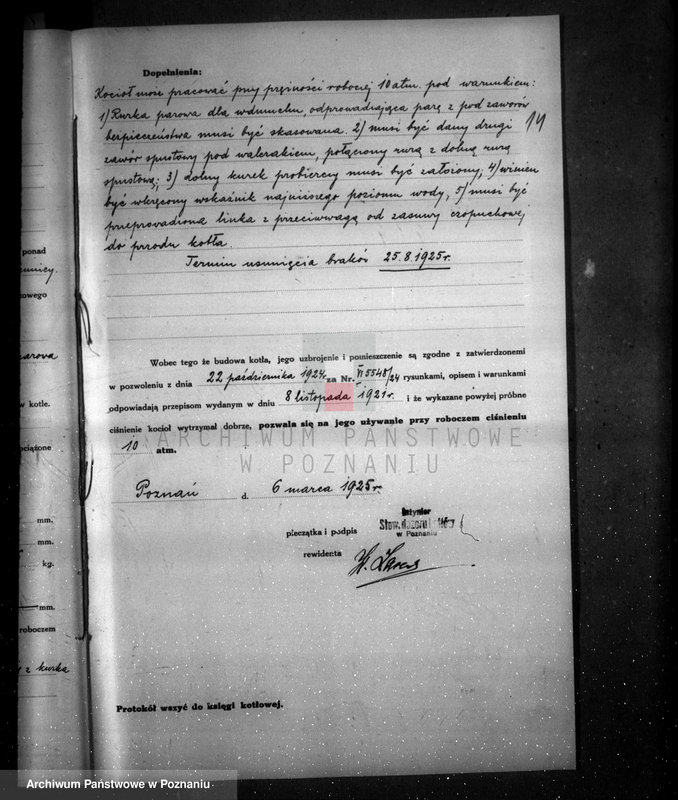 Dopełnienia:
Kocioł może pracować przy prężności roboczej 10 atm. pod warunkiem:
1) Rurka parowa dla wdmuchu, odprowadzająca parę z pod zaworów
bezpieczeństwa musi być skasowana. 2) musi być dany drugi
14
zawór spustowy pod walczakiem, połączony rurą z dolną rurą
spustową; 3) dolny kurek probierczy musi być założony, 4) winien
być wkręcony wskaźnik najniższego poziomu wody, 5) musi być
przeprowadzona linka z przeciwwagą od zasuwy czopuchowej
do przodu kotła.
Termin usunięcia braków 25.8.1925 r.
Wobec tego że budowa kotła, jego uzbrojenie i pomieszczenie są zgodne z zatwierdzonemi
w pozwoleniu z dnia 22 października 1924 r. za Nr. VI 5548/24 rysunkami, opisem i warunkami
odpowiadają przepisom wydanym w dniu 8 listopada 1921 r. i że wykazane powyżej próbne
ciśnienie kocioł wytrzymał dobrze, pozwala się na jego używanie przy roboczem ciśnieniu
10 atm.
ARCHIWUM PAŃSTWOWE
W POZNANIU
Poznań d. 6 marca 1925 r.
pieczątka i podpis
rewidenta
Inżynier
Stow. dozoru kotłów
w Poznaniu
Protokół wszyć do księgi kotłowej.
ponad
owego
arowa
w kotle.
ociążone
mm.
mm.
kg.
mm.
roboczem
z kurka
Archiwum Państwowe w Poznaniu